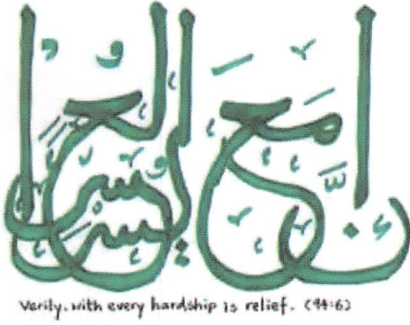 إِنَّ مَعَ الْعُسْرِ يُسْرًا
Verily, with every hardship is relief. (94:6)